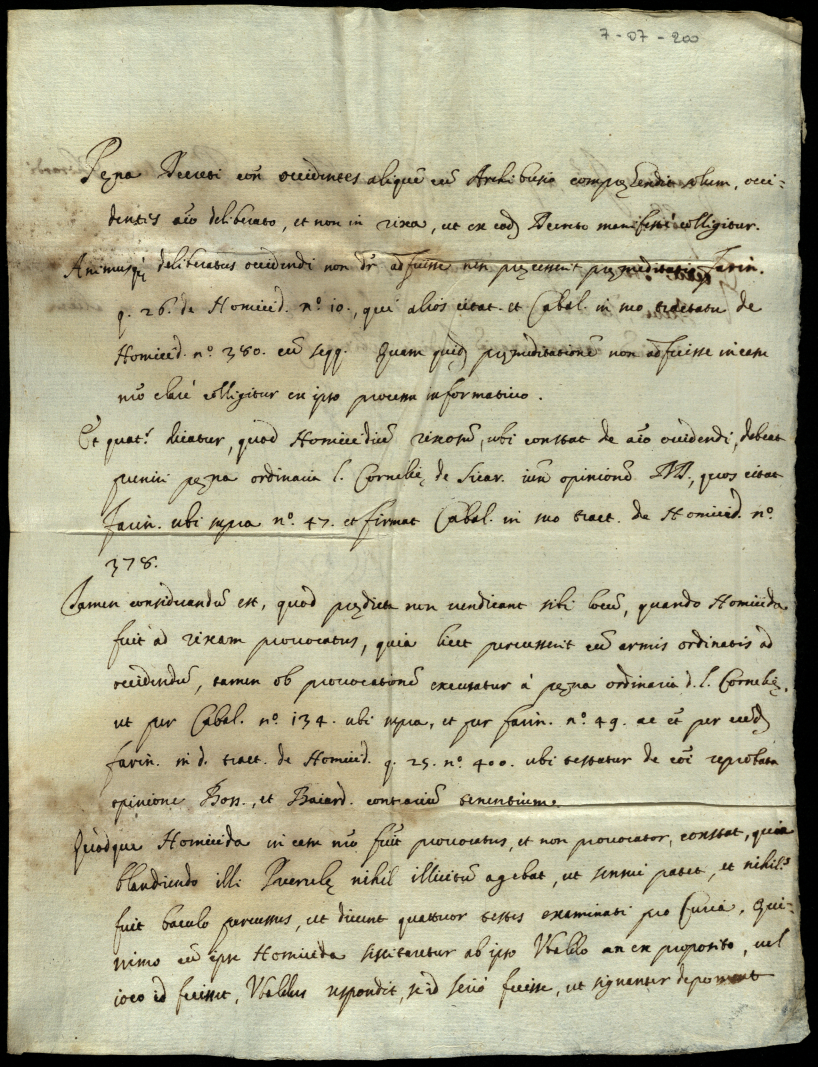 7-07-200
Pęna Decreti eor̃ occidentes aliquẽ cũ Archibusio compręhendit solum, occi-
dentes aĩo deliberato, et non in rixa, ut ex eod̃ Decreto manifestè colligitur.
Animusq̃ deliberatus occidendi non dr̃ adfuisse nisi pręcesserit pręmeditatio, Farin.
q. 26. de Homicid. nº. 10., qui alios citat. et Cabal. in suo tractatu de
Homicid. nº. 380. cũ seqq. Quam quid̃ pręmeditationẽ non adfuisse in casu
nr̃o clarè colligitur ex ipso processu informativo.
Et quat.s dicatur, quod Homicidiũ rixosũ, ubi constat de aĩo occidendi, debeat
puniri pęna ordinaria l. Cornelię de Sicar. iux̃ opinionẽ DD., quos citat
Farin. ubi supra nº. 47. et firmat Cabal. in suo tract. de Homicid. nº.
378.
Tamen considerandũ est, quod prędicta non vendicant sibi locũ, quando Homicida
fuit ad rixam provocatus, quia licet percusserit cũ armis ordinatis ad
occidendũ, tamen ob provocationẽ excusatur à pęna ordinaria d. l. Cornelię,
ut per Cabal. nº. 134. ubi supra, et per Farin. nº. 49. ac et̃ per eund̃
Farin. in d. tract. de Homicid. q. 25. nº. 400. ubi testatur de cõi reprobata
opinione Boss., et Baiard. contrariũ tenentium.
Quodque Homicida in casu nr̃o fuit provocatus, et non provocator, constat, quia
blandiendo illi Puerulę nihil illicitũ agebat, ut sensui patet, et nihil.s
fuit baculo percussus, ut dicunt quattuor testes examinati pro Curia. Qui-
nimo cũ ipse Homicida sciscitaretur ab ipso Ubaldo an ex proposito, vel
ioco id fecisset, Ubaldus respondit, se id seriò fecisse, ut signanter deponunt